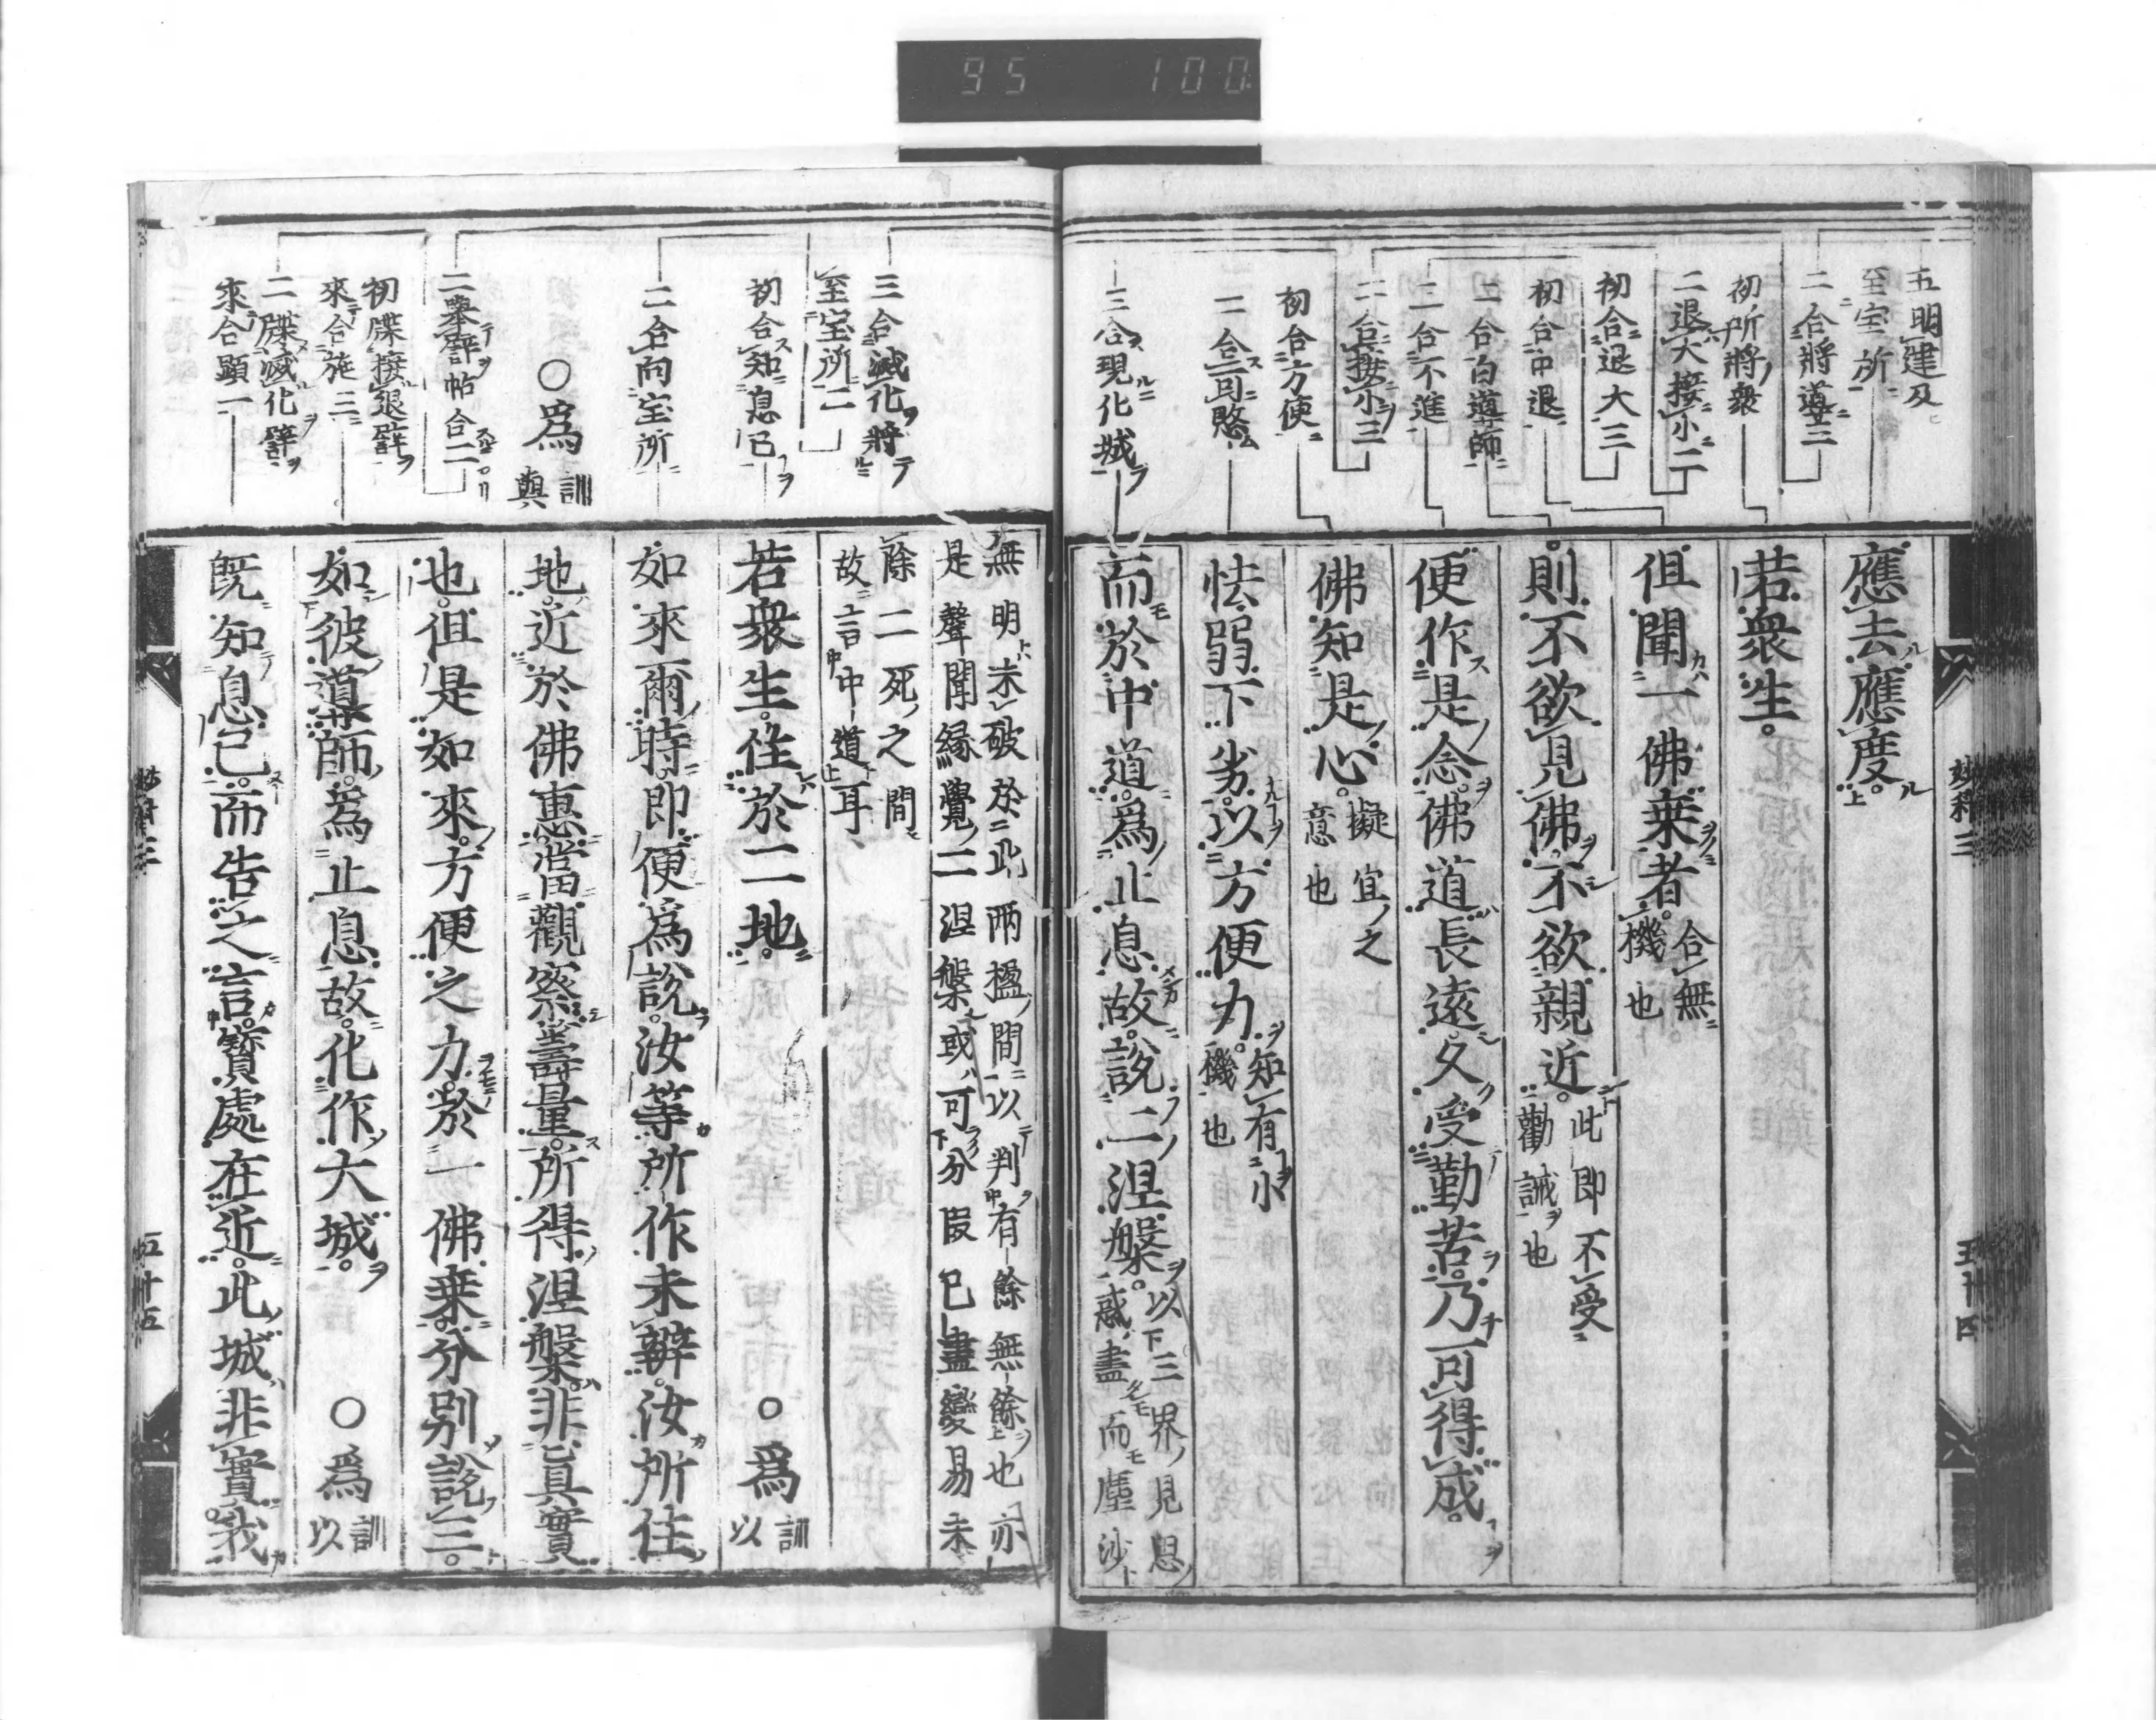 95 100
五明建及
至宝所
二合將導三
初所將衆
二退大接小二
初合退大三
初合中退
二合白導師
二合不進
二合接小三
初合方便
二合可愍
三合現化城
應去應度
若衆生
但聞一佛乗者 合無
機也
則不欲見佛不欲親近 此即不受
勸誡也
便作是念佛道長遠久受勤苦乃可得成
佛知是心 擬宜之
意也
怯弱下劣以方便力 知有小
機也
而於中道爲止息故説二涅槃 以下三界見思
惑盡而塵沙
五十四
三合滅化將
至宝所二
初合知息已
二合向宝所
○爲 訓
與
二擧譬帖合二
初牒接退譬
來合施三
二牒滅化譬
來合顯一
無明未破於此兩楹間以判有餘無餘也亦
是聲聞縁覺二涅槃或可分叚已盡變易未
除二死之間
故言中道耳
若衆生住於二地 ○爲 訓
以
如來爾時即便爲説汝等所作未辧汝所住
地近於佛惠當觀察籌量所得涅槃非真實
也但是如來方便之力於一佛乗分別説三
如彼導師爲止息故化作大城 ○爲 訓
以
既知息已而告之言寳處在近此城非實我
五十五